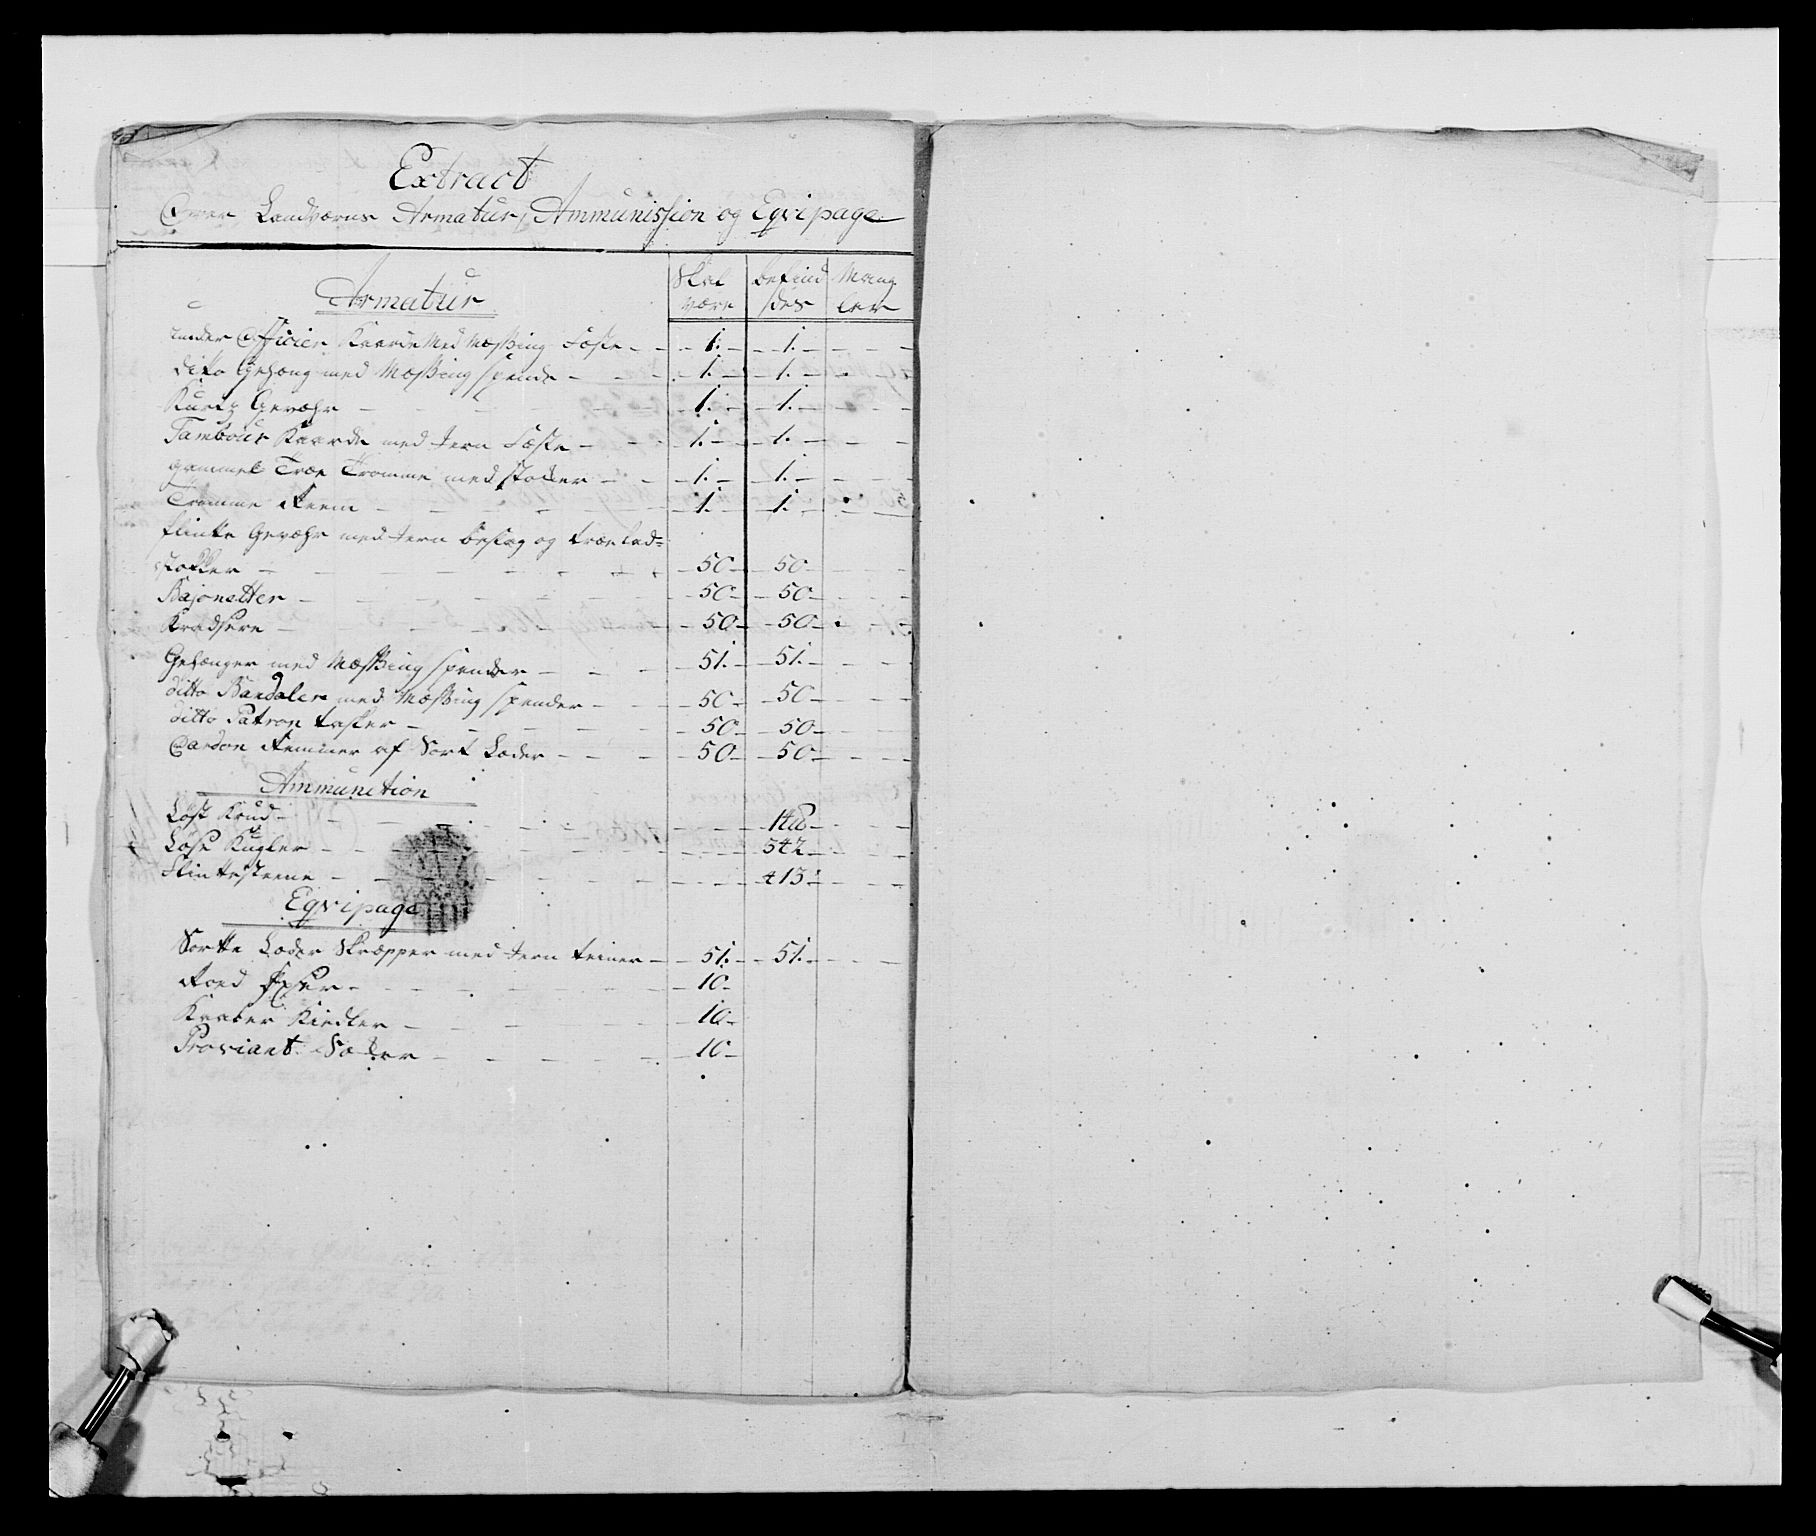 Extract
Over Landværns Armatur, Ammunission og Eqvipage
Skal befind Mang
Armatur være des ler
under Officier Kaarde Med Mæssing Fæste 1. 1.
dito Gehæng med Mæssing spende 1. 1.
Kurtz Gevæhr 1. 1.
Tambour Kaarde med Jern Fæste 1. 1.
gammel Træe Tromme med stokker 1. 1.
Tromme Reem 1. 1.
flinte Gevæhr med Jern beslag og træe lad=
stokker 50 50
Bajonetter 50 50
Kradsere 50 50
Gehænger med Mæssing spender 51. 51.
ditto Bandoler med Mæssing spender 50 50
ditto Patron tasker 50 50
Cardon Remmer af Sort Læder 50 50
Ammunition
Løst Krud
Løse Kugler 542
Flintesteene 413
Eqvipage
Sortte Læder Skræpper med Jern teiner 51. 51.
Roed Øxer 10
Kaaber Kiedler 10
Proviant Sække 10